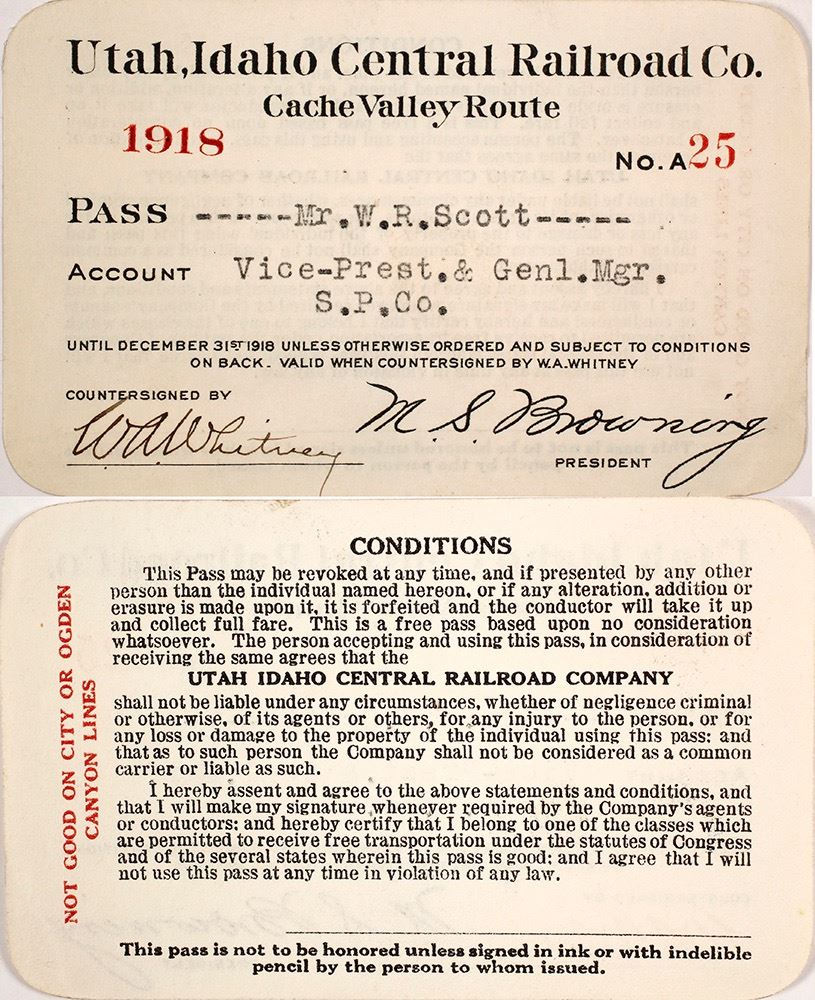 Utah, Idaho Central Railroad Co.
Cache Valley Route
1918
No. A25
PASS -----Mr.W.R.Scott-----
ACCOUNT Vice-Prest.& Genl.Mgr.
S.P.Co.
UNTIL DECEMBER 31ST 1918 UNLESS OTHERWISE ORDERED AND SUBJECT TO CONDITIONS
ON BACK. VALID WHEN COUNTERSIGNED BY W.A.WHITNEY
COUNTERSIGNED BY
WAWhitney
M. S. Browning
PRESIDENT
CONDITIONS
This Pass may be revoked at any time, and if presented by any other
person than the individual named hereon, or if any alteration, addition or
erasure is made upon it, it is forfeited and the conductor will take it up
and collect full fare. This is a free pass based upon no consideration
whatsoever. The person accepting and using this pass, in consideration of
receiving the same agrees that the
UTAH IDAHO CENTRAL RAILROAD COMPANY
shall not be liable under any circumstances, whether of negligence criminal
or otherwise, of its agents or others, for any injury to the person, or for
any loss or damage to the property of the individual using this pass: and
that as to such person the Company shall not be considered as a common
carrier or liable as such.
I hereby assent and agree to the above statements and conditions, and
that I will make my signature whenever required by the Company's agents
or conductors: and hereby certify that I belong to one of the classes which
are permitted to receive free transportation under the statutes of Congress
and of the several states wherein this pass is good: and I agree that I will
not use this pass at any time in violation of any law.
This pass is not to be honored unless signed in ink or with indelible
pencil by the person to whom issued.
NOT GOOD ON CITY OR OGDEN
CANYON LINES